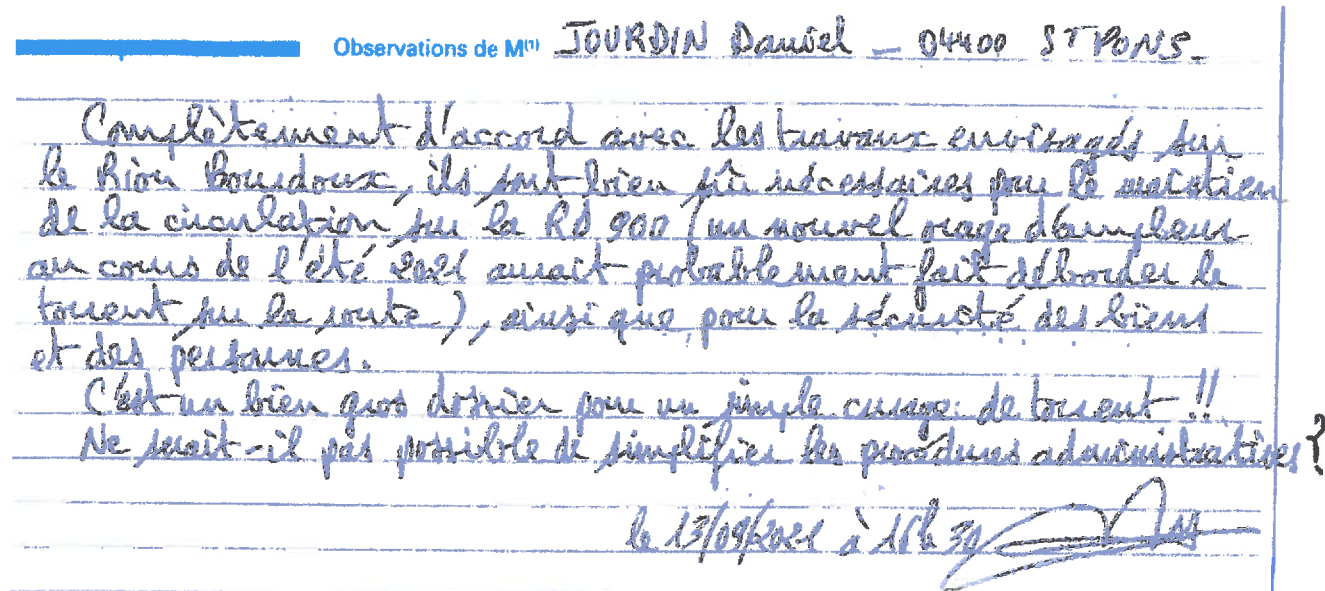 Observations de M(1) JOURDIN Daniel - 04400 ST PONS
Complètement d'accord avec les travaux envisagés sur
le Riou Bourdoux, ils sont bien sûr nécessaires pour le maintien
de la circulation sur la RD 900 (un nouvel orage d'ampleur
au cours de l'été 2021 aurait probablement fait déborder le
torrent sur la route), ainsi que pour la sécurité des biens
et des personnes.
C'est un bien gros dossier pour un simple curage de torrent !!
Ne serait-il pas possible de simplifier les procédures administratives ?
le 13/09/2021 à h 30